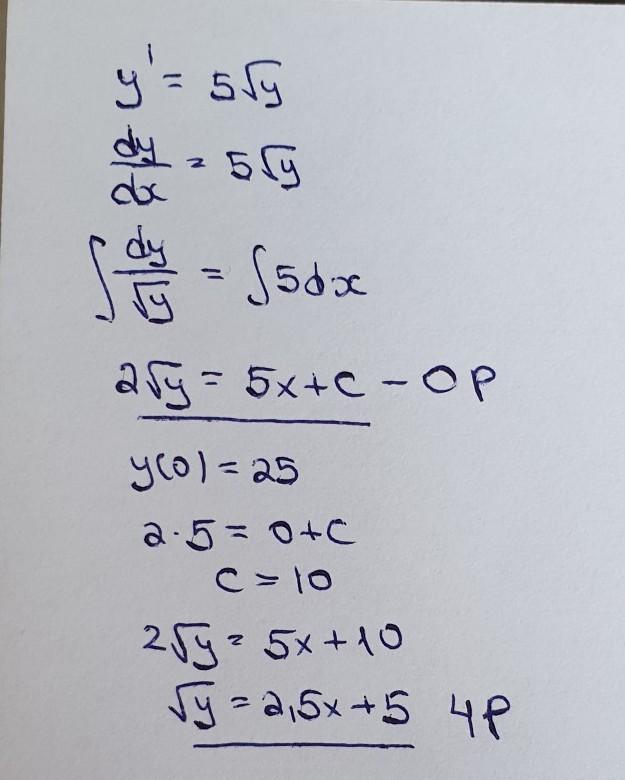 y' = 5√y
dy/dx = 5√y
∫ dy/√y = ∫ 5dx
2√y = 5x + C – ОР
y(0) = 25
2·5 = 0 + C
C = 10
2√y = 5x + 10
√y = 2,5x + 5 ЧР